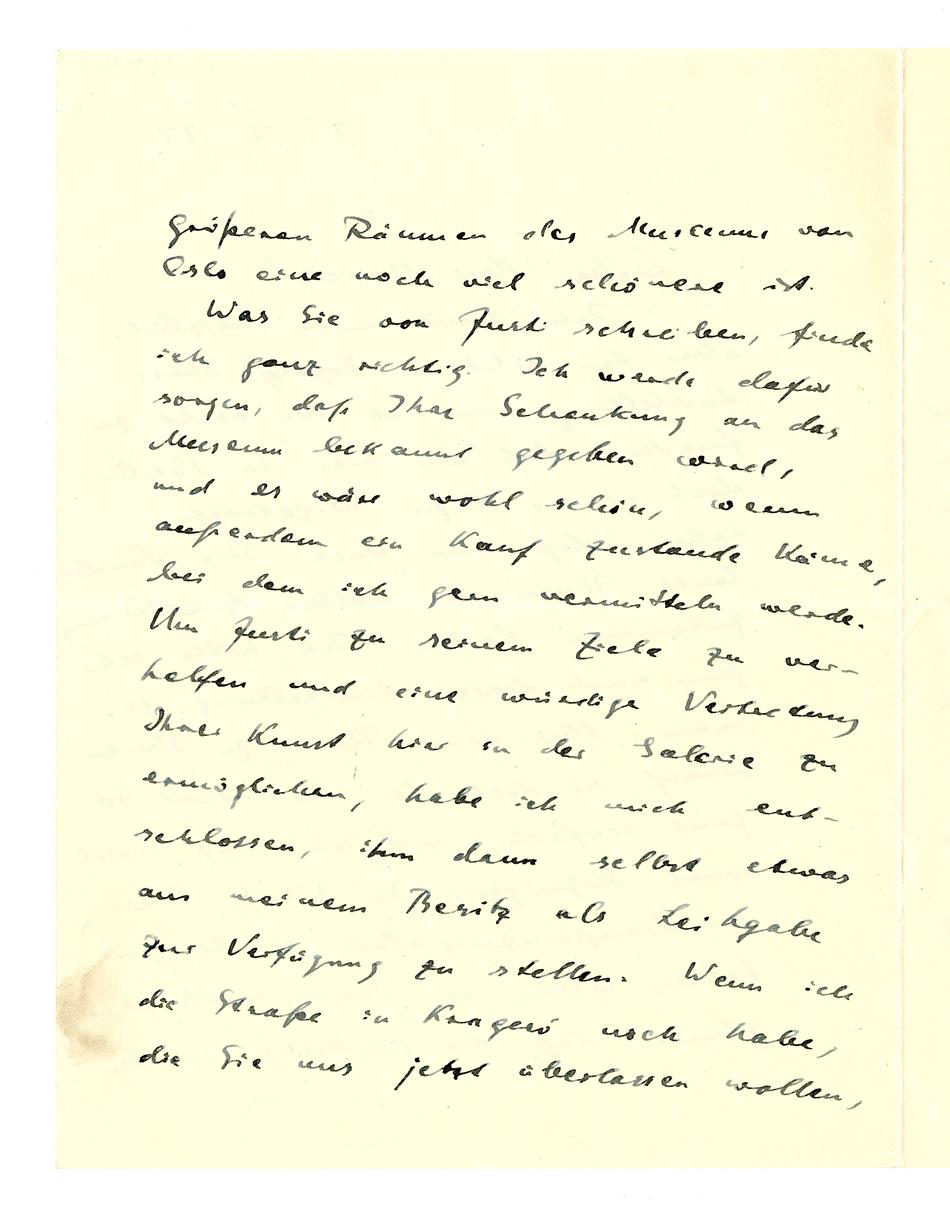 größeren Räumen des Museums von
Oslo eine noch viel schönere ist.
Was Sie von Justi schreiben, finde
ich ganz richtig. Ich werde dafür
sorgen, daß Ihre Schenkung an das
Museum bekannt gegeben wird,
und es wäre wohl schön, wenn
außerdem ein Kauf zustande käme,
bei dem ich gern vermitteln werde.
Um Justi zu seinem Ziele zu ver-
helfen und eine würdige Vertretung
Ihrer Kunst hier in der Galerie zu
ermöglichen, habe ich mich ent-
schlossen, ihm dann selbst etwas
aus meinem Besitz als Leihgabe
zur Verfügung zu stellen. Wenn ich
die Straße in Kragerö noch habe,
die Sie uns jetzt überlassen wollen,